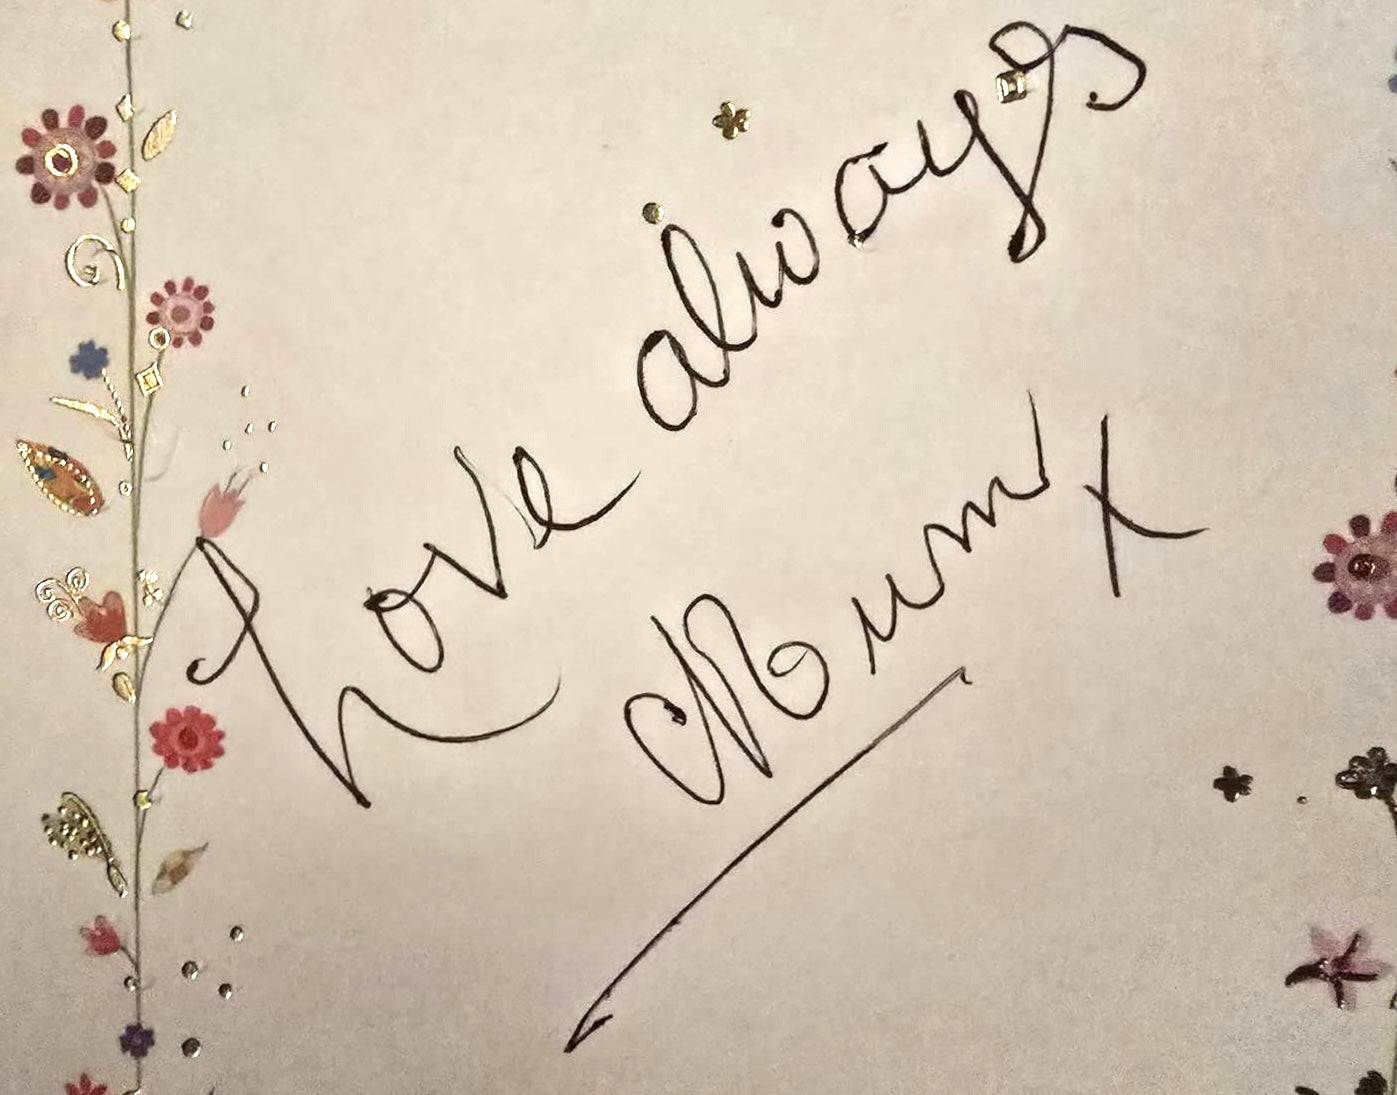 Love always
Mum x